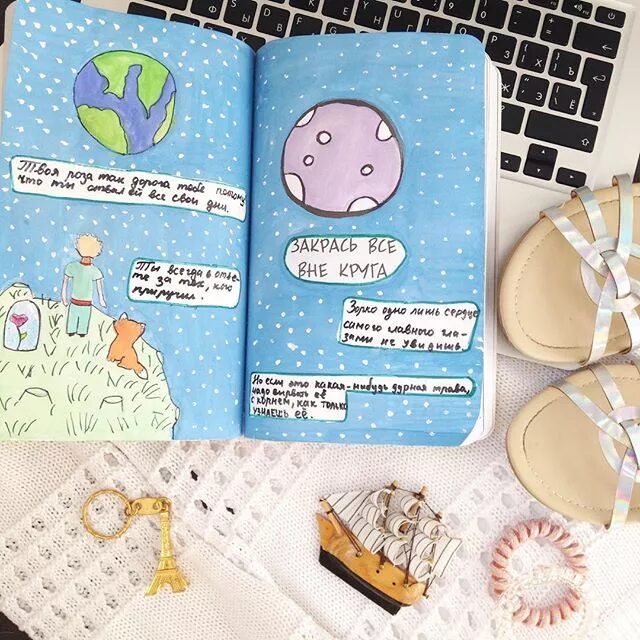 Твоя роза так дорога тебе потому,
что ты отдал ей все свои дни.
Ты всегда в отве-
те за тех, кого
приручил.
ЗАКРАСЬ ВСЕ
ВНЕ КРУГА
Зорко одно лишь сердце
самого главного гла-
зами не увидишь.
Но если это какая-нибудь дурная трава,
надо вырвать её
с корнем, как только
узнаешь её.